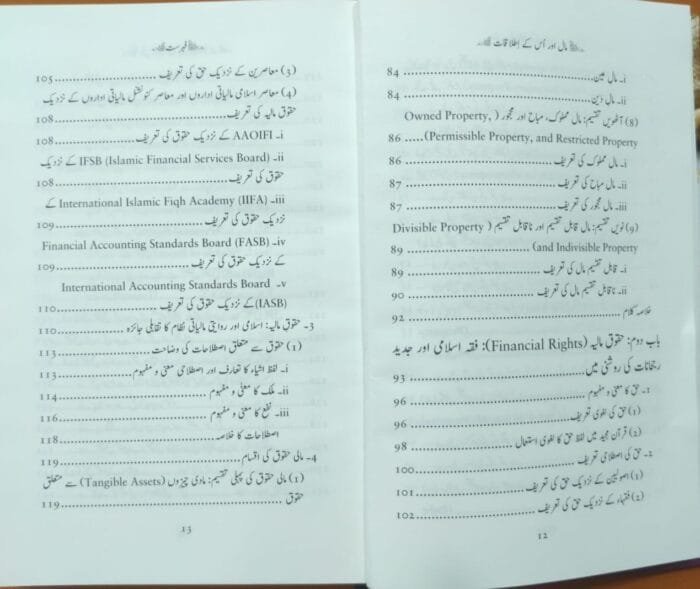 مال اور اُس کے اطلاقات
i۔ مال عین 84
ii۔ مال دین 84
(8) آٹھویں تقسیم: مال مملوک، مباح اور مجور (Owned Property,
Permissible Property, and Restricted Property) 86
i۔ مال مملوک کی تعریف 86
ii۔ مال مباح کی تعریف 87
iii۔ مال مجور کی تعریف 87
(9) نویں تقسیم: مال قابل تقسیم اور ناقابل تقسیم (Divisible Property
and Indivisible Property) 89
i۔ قابل تقسیم مال کی تعریف 89
ii۔ ناقابل تقسیم مال کی تعریف 90
خلاصہ کلام 92
باب دوم: حقوق مالیہ (Financial Rights): فقہ اسلامی اور جدید
رجحانات کی روشنی میں 93
1۔ حق کا معنی و مفہوم 96
(1) حق کی لغوی تعریف 96
(2) قرآن مجید میں لفظ حق کا لغوی استعمال 98
2۔ حق کی اصطلاحی تعریف 100
(1) اصولیین کے نزدیک حق کی تعریف 101
(2) فقہاء کے نزدیک حق کی تعریف 102
12
فہرست
(3) معاصرین کے نزدیک حق کی تعریف 105
(4) معاصر اسلامی مالیاتی اداروں اور معاصر کنونشنل مالیاتی اداروں کے نزدیک
حقوق مالیہ کی تعریف 108
i۔ AAOIFI کے نزدیک حقوق کی تعریف 108
ii۔ IFSB (Islamic Financial Services Board) کے نزدیک
حقوق کی تعریف 108
iii۔ International Islamic Fiqh Academy (IIFA) کے
نزدیک حقوق کی تعریف 109
iv۔ Financial Accounting Standards Board (FASB)
کے نزدیک حقوق کی تعریف 109
v۔ International Accounting Standards Board
(IASB) کے نزدیک حقوق کی تعریف 110
3۔ حقوق مالیہ: اسلامی اور روایتی مالیاتی نظام کا تقابلی جائزہ 110
(1) حقوق سے متعلق اصطلاحات کی وضاحت 113
i۔ لفظ اشیاء کا تعارف اور اصطلاحی معنی و مفہوم 113
ii۔ ملک کا معنی و مفہوم 114
iii۔ نفع کا معنی و مفہوم 116
اصطلاحات کا خلاصہ 118
4۔ مالی حقوق کی اقسام 119
(1) مالی حقوق کی پہلی تقسیم: مادی چیزوں (Tangible Assets) سے متعلق
حقوق 119
13